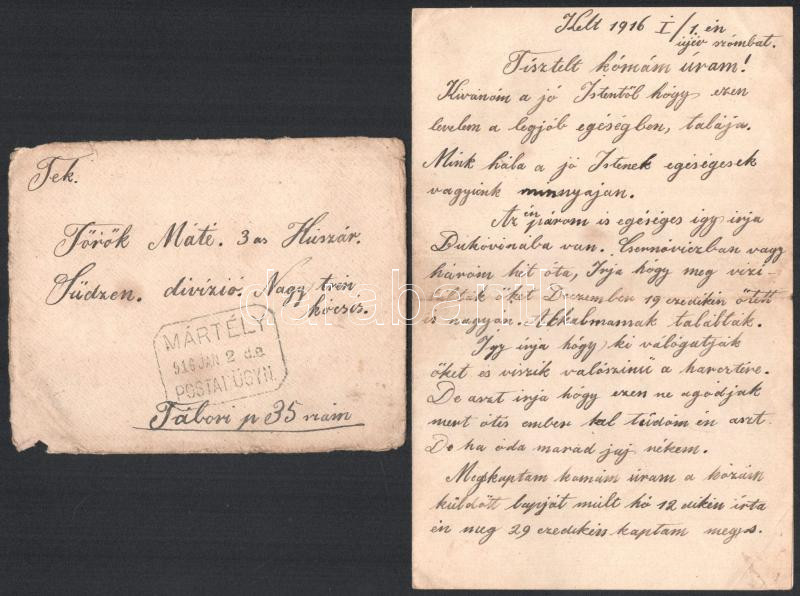 Tek.
Török Máté. 3 as Húszár.
Südzen. divízió. Nagy trén
kócsis.
MÁRTÉLY
916 JAN 2 d.e.
POSTAI ÜGYN.
Tábori p 35 szám
Kelt 1916 I/1. én
újév szómbat.
Tisztelt kómám úram!
Kivánóm a jó Istentől hógy ezen
levelem a legjób egéségben, talája.
Mink hála a jó Istenek egéségesek
vagyúnk minnyajan.
Az én párom is egéséges igy irja
Bukóvónaba van. Csernóviczban vagy
három hét óta, Irja hógy meg vizi-
tálták őket Deczember 19 ezedikén ötett
is nagyón. Alkalmasnak találták.
Igy irja hógy ki válógatják
őket és viszik valószinű a harcztére.
De aszt irja hógy ezen ne agódjak
mert ötis ember tal túdóm én aszt.
De ha óda marad jaj nékem.
Megkaptam komám úram a hózám
küldött lapját múlt hó 12 dikén írta
én meg 29 ezedikén kaptam meg.
darabanth